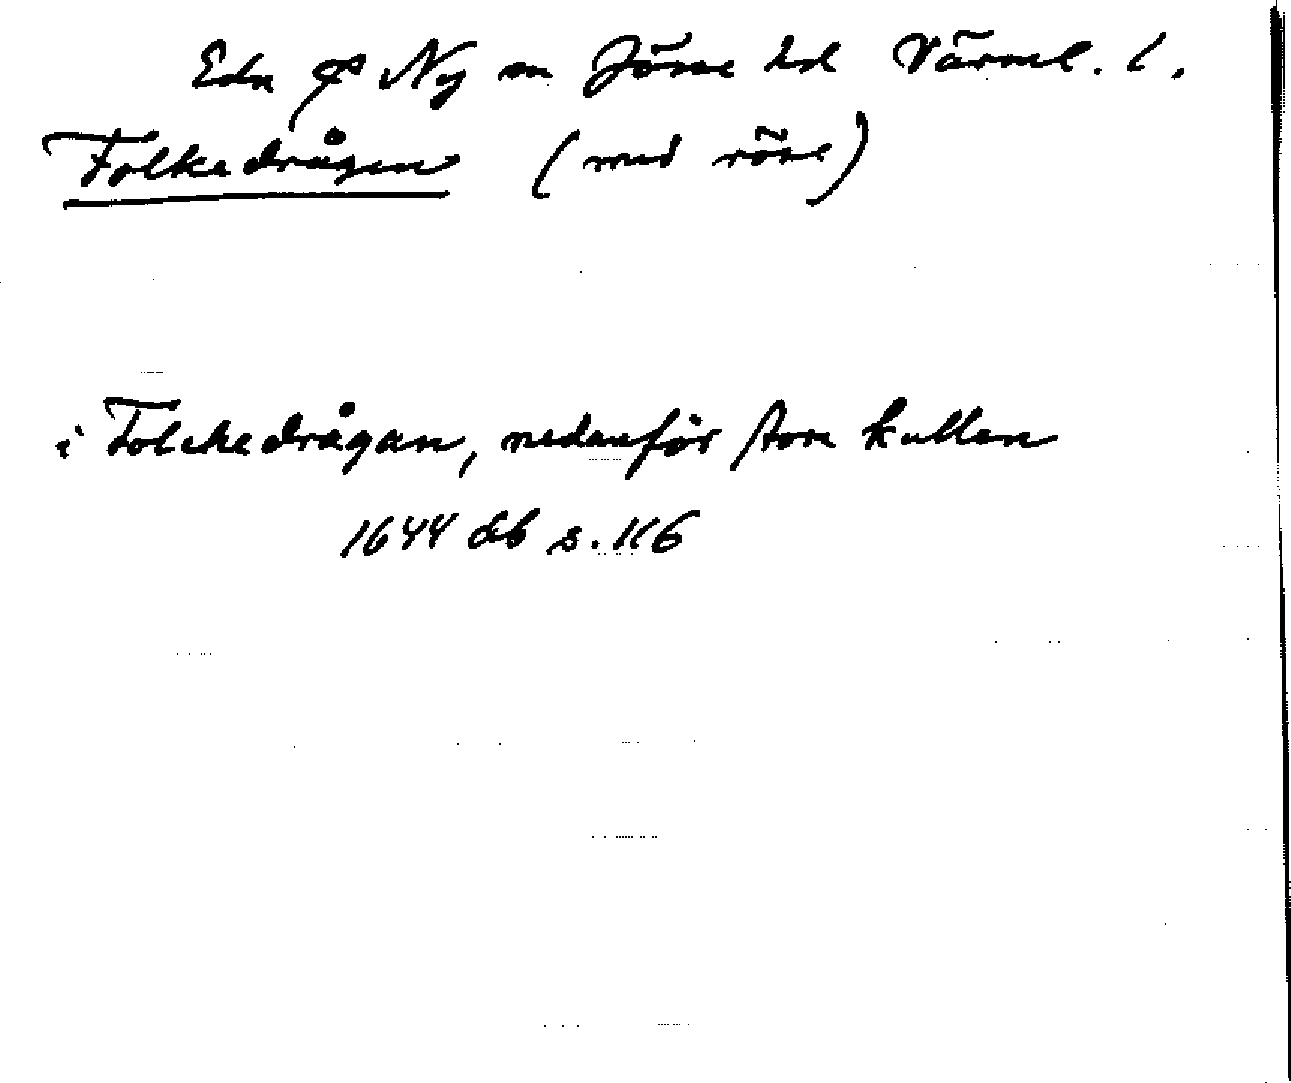 Eda sn Ny sn Jösse hd Värml. l.
Folkedrågen (med röse)
i Folckedrågan, nedanför stora kullen
1644 db s. 116